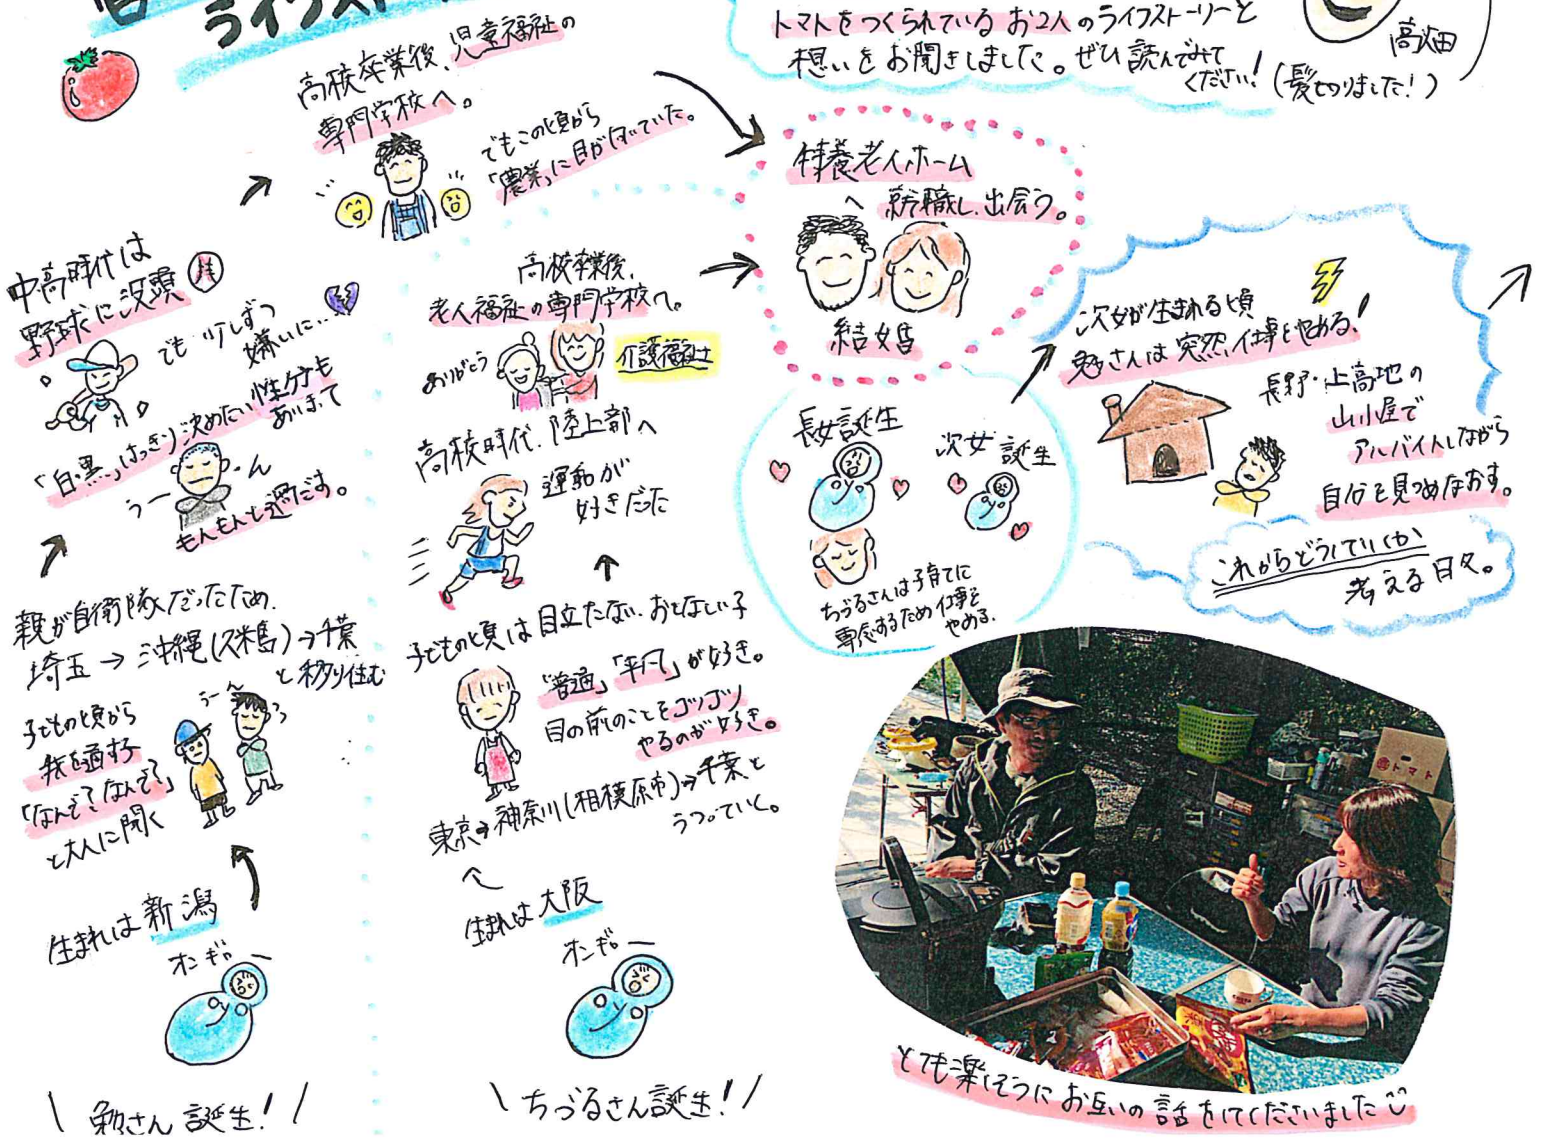 ライフスト
トマトをつくられているお2人のライフストーリーと
想いをお聞きしました。ぜひ読んでみて
ください!
(髪切りました!)
高畑
高校卒業後、児童福祉の
専門学校へ。
でもこの頃から
「農業」に目が向いていた。
中高時代は
野球に没頭
でも少しずつ
嫌いに…
「白・黒」はっきり決めたい性分も
あいまって
うーーん
もんもんと過ごす。
親が自衛隊だったため、
埼玉→沖縄(久米島)→千葉
と移り住む
子どもの頃から
我を通す子
「なんで?なんで?」
と大人に聞く
うーん
生まれは新潟
オンギャー
\ 勉さん誕生! /
高校卒業後、
老人福祉の専門学校へ。
ありがとう
介護福祉士
高校時代、陸上部へ
運動が
好きだった
子どもの頃は目立たないおとなしい子
「普通」「平凡」が好き。
目の前のことをコツコツ
やるのが好き。
東京→神奈川(相模原市)→千葉と
うつっていく。
生まれは大阪
オンギャー
\ ちづるさん誕生! /
特養老人ホーム
へ就職し、出会う。
結婚
長女誕生
次女誕生
ちづるさんは子育てに
専念するため仕事を
やめる。
次女が生まれる頃
勉さんは突然、仕事をやめる!
長野・上高地の
山小屋で
アルバイトしながら
自分を見つめなおす。
これからどうしていくか
考える日々。
トマト
とても楽しそうにお互いの話をしてくださいました